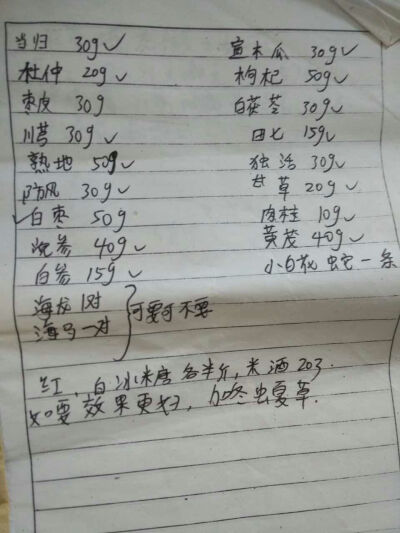 当归 30g✓
杜仲 20g✓
枣皮 30g
川芎 30g✓
熟地 50g✓
防风 30g✓
✓白枣 50g
党参 40g✓
白参 15g✓
海龙 1对
海马 一对
可要可不要
宣木瓜 30g✓
枸杞 50g✓
白茯苓 30g✓
田七 15g✓
独活 30g✓
甘草 20g✓
肉桂 10g✓
黄茂 40g✓
小白花蛇一条
红、白冰糖各半斤,米酒20
如要效果更好,加冬虫夏草.